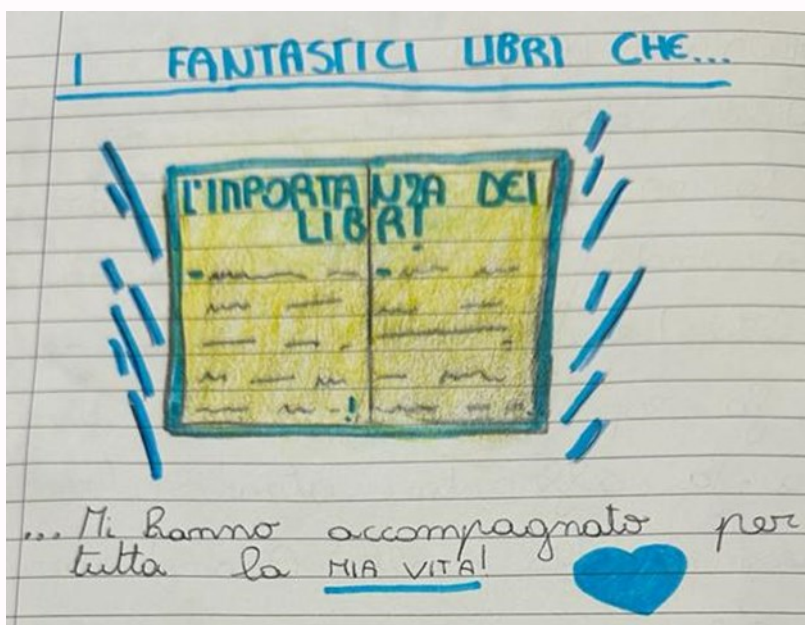 I FANTASTICI LIBRI CHE...
L'INPORTANZA DEI
LIBRI
... Mi hanno accompagnato per
tutta la MIA VITA!